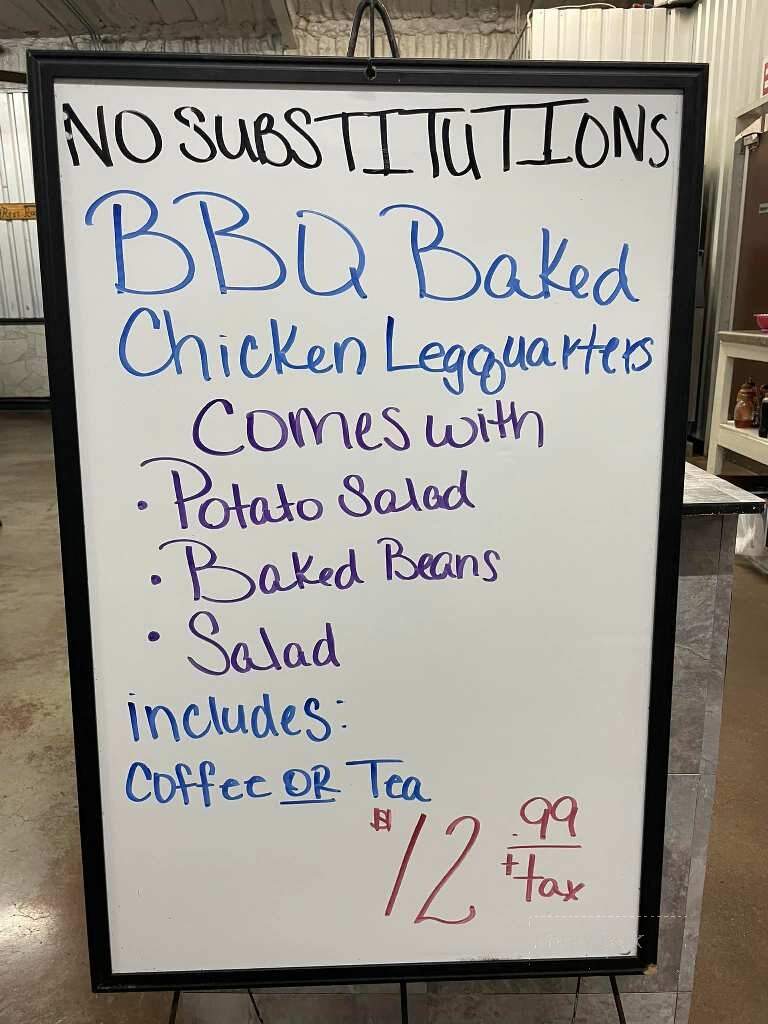 NO SUBSTITUTIONS
BBQ Baked
Chicken Legquarters
Comes with
• Potato Salad
• Baked Beans
• Salad
includes:
Coffee OR Tea
$12.99
+tax